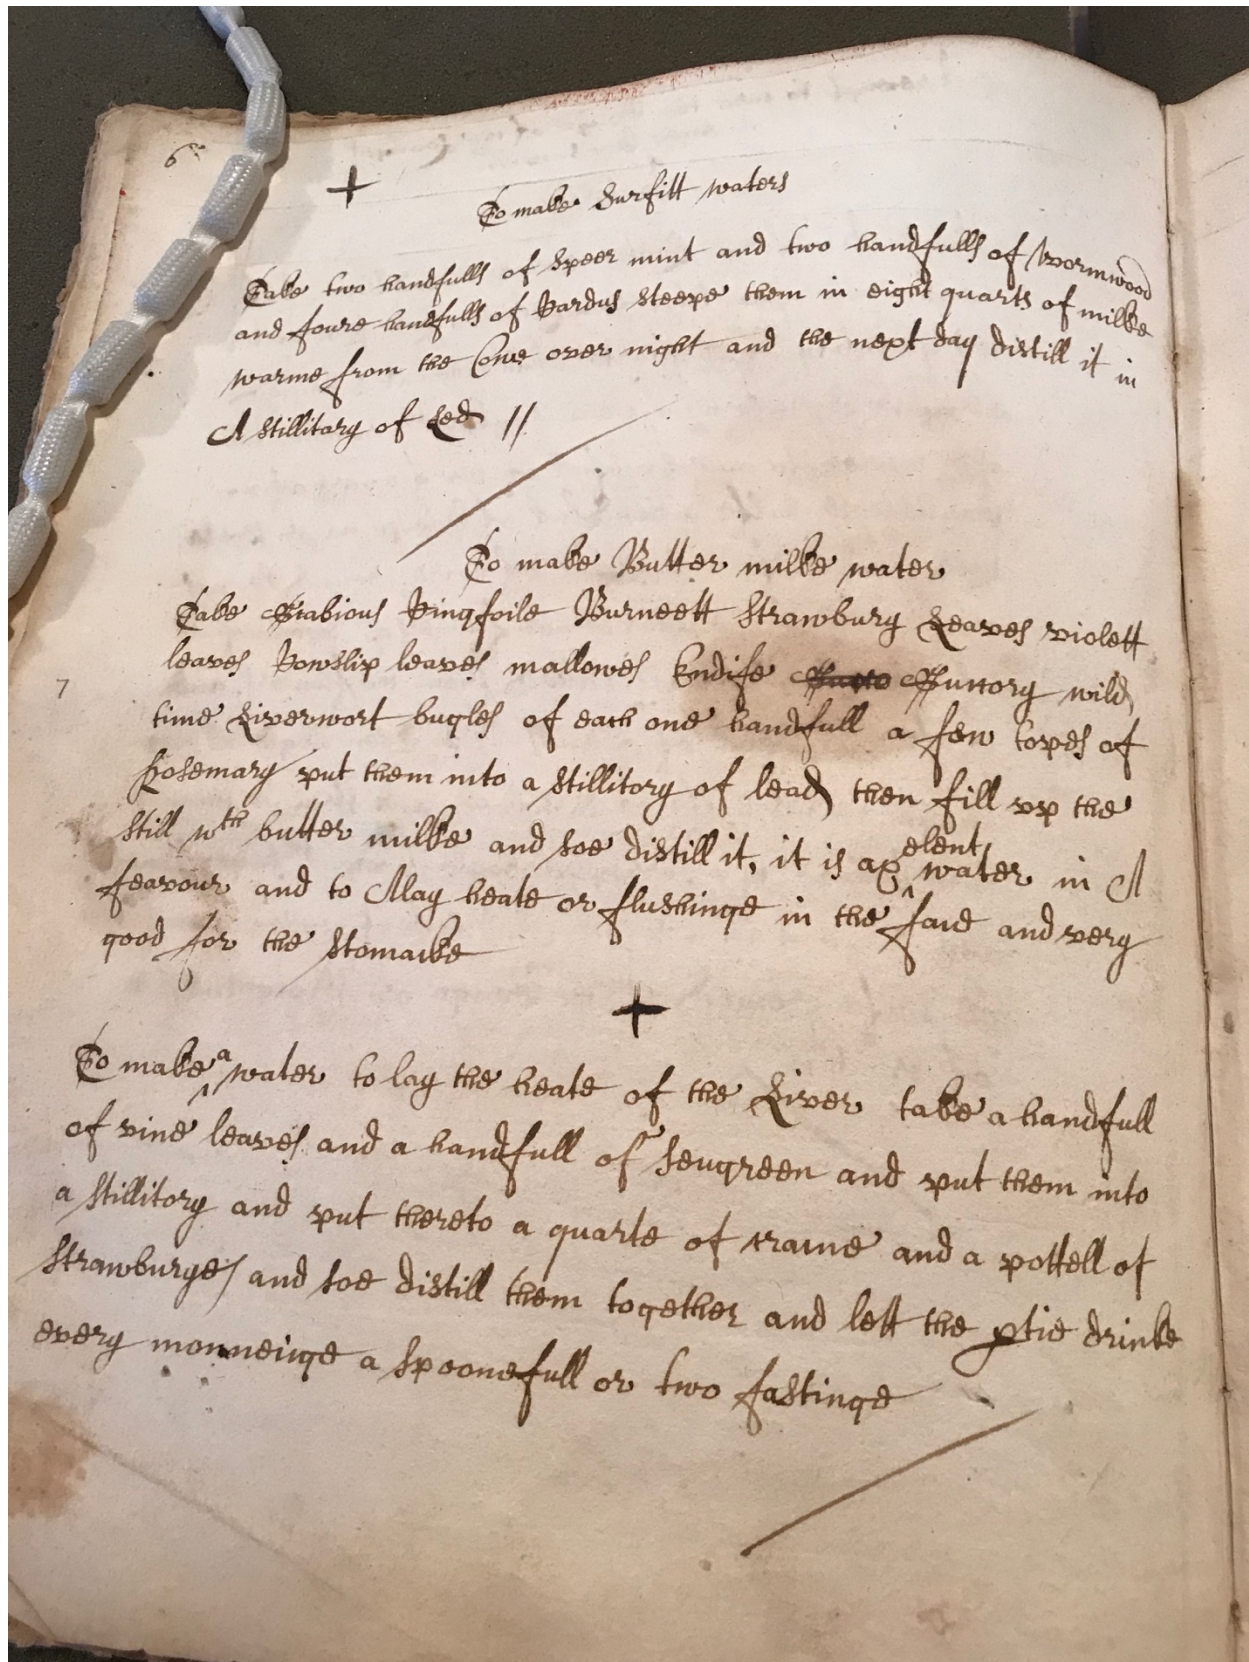 6
To make Surfitt waters
Take two handfulls of Speer mint and two handfulls of Wormwood
and foure handfulls of Cardus Steepe them in eight quarts of milke
warme from the Cowe over night and the next day distill it in
A Stillitary of Led //
To make Butter milke water
Take Scabious Cinqfoile Burneett Strawbury Leaves violett
leaves Cowslip leaves mallowes Endife Succo Succory wild
7
time Liverwort bugles of each one handfull a few topes of
Rosemary put them into a Stillitory of lead then fill vp the
Still wth butter milke and soe distill it, it is axelent water in A
feavour and to Allay heate or flushinge in the face and very
good for the Stomacke
To make a water to lay the heate of the Liver take a handfull
of vine leaves and a handfull of Sengreen and put them into
a Stillitory and put thereto a quarte of creame and a pottell of
Strawburyes and soe distill them together and lett the ptie drinke
every morneinge a Spoonefull or two fastinge